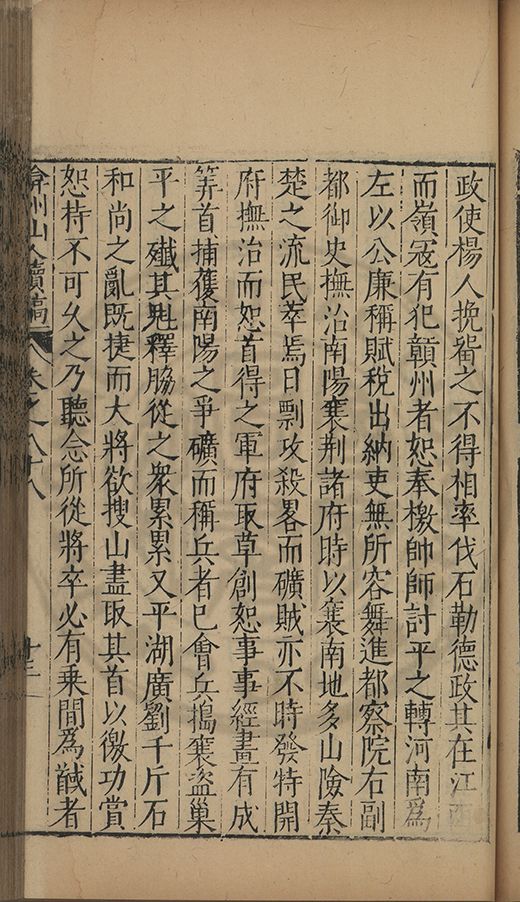 政使楊人挽畱之不得相率伐石勒德政其在江西
而嶺冦有犯贛州者恕奉檄帥師討平之轉河南爲
左以公廉稱賦稅出納吏無所容舞進都察院右副
都御史撫治南陽襄荆諸府時以襄南地多山險秦
楚之流民萃焉日剽攻殺畧而礦賊亦不時發特開
府撫治而恕首得之軍府取草創恕事事經畫有成
筭首捕獲南陽之爭礦而稱兵者已會兵搗襄盗巢
平之殲其魁釋脇從之衆累累又平湖廣劉千斤石
和尚之亂既捷而大將欲搜山盡取其首以徼功賞
恕持不可久之乃聽念所從將卒必有乗間爲馘者
弇州山人續稿 卷之八十八 十三